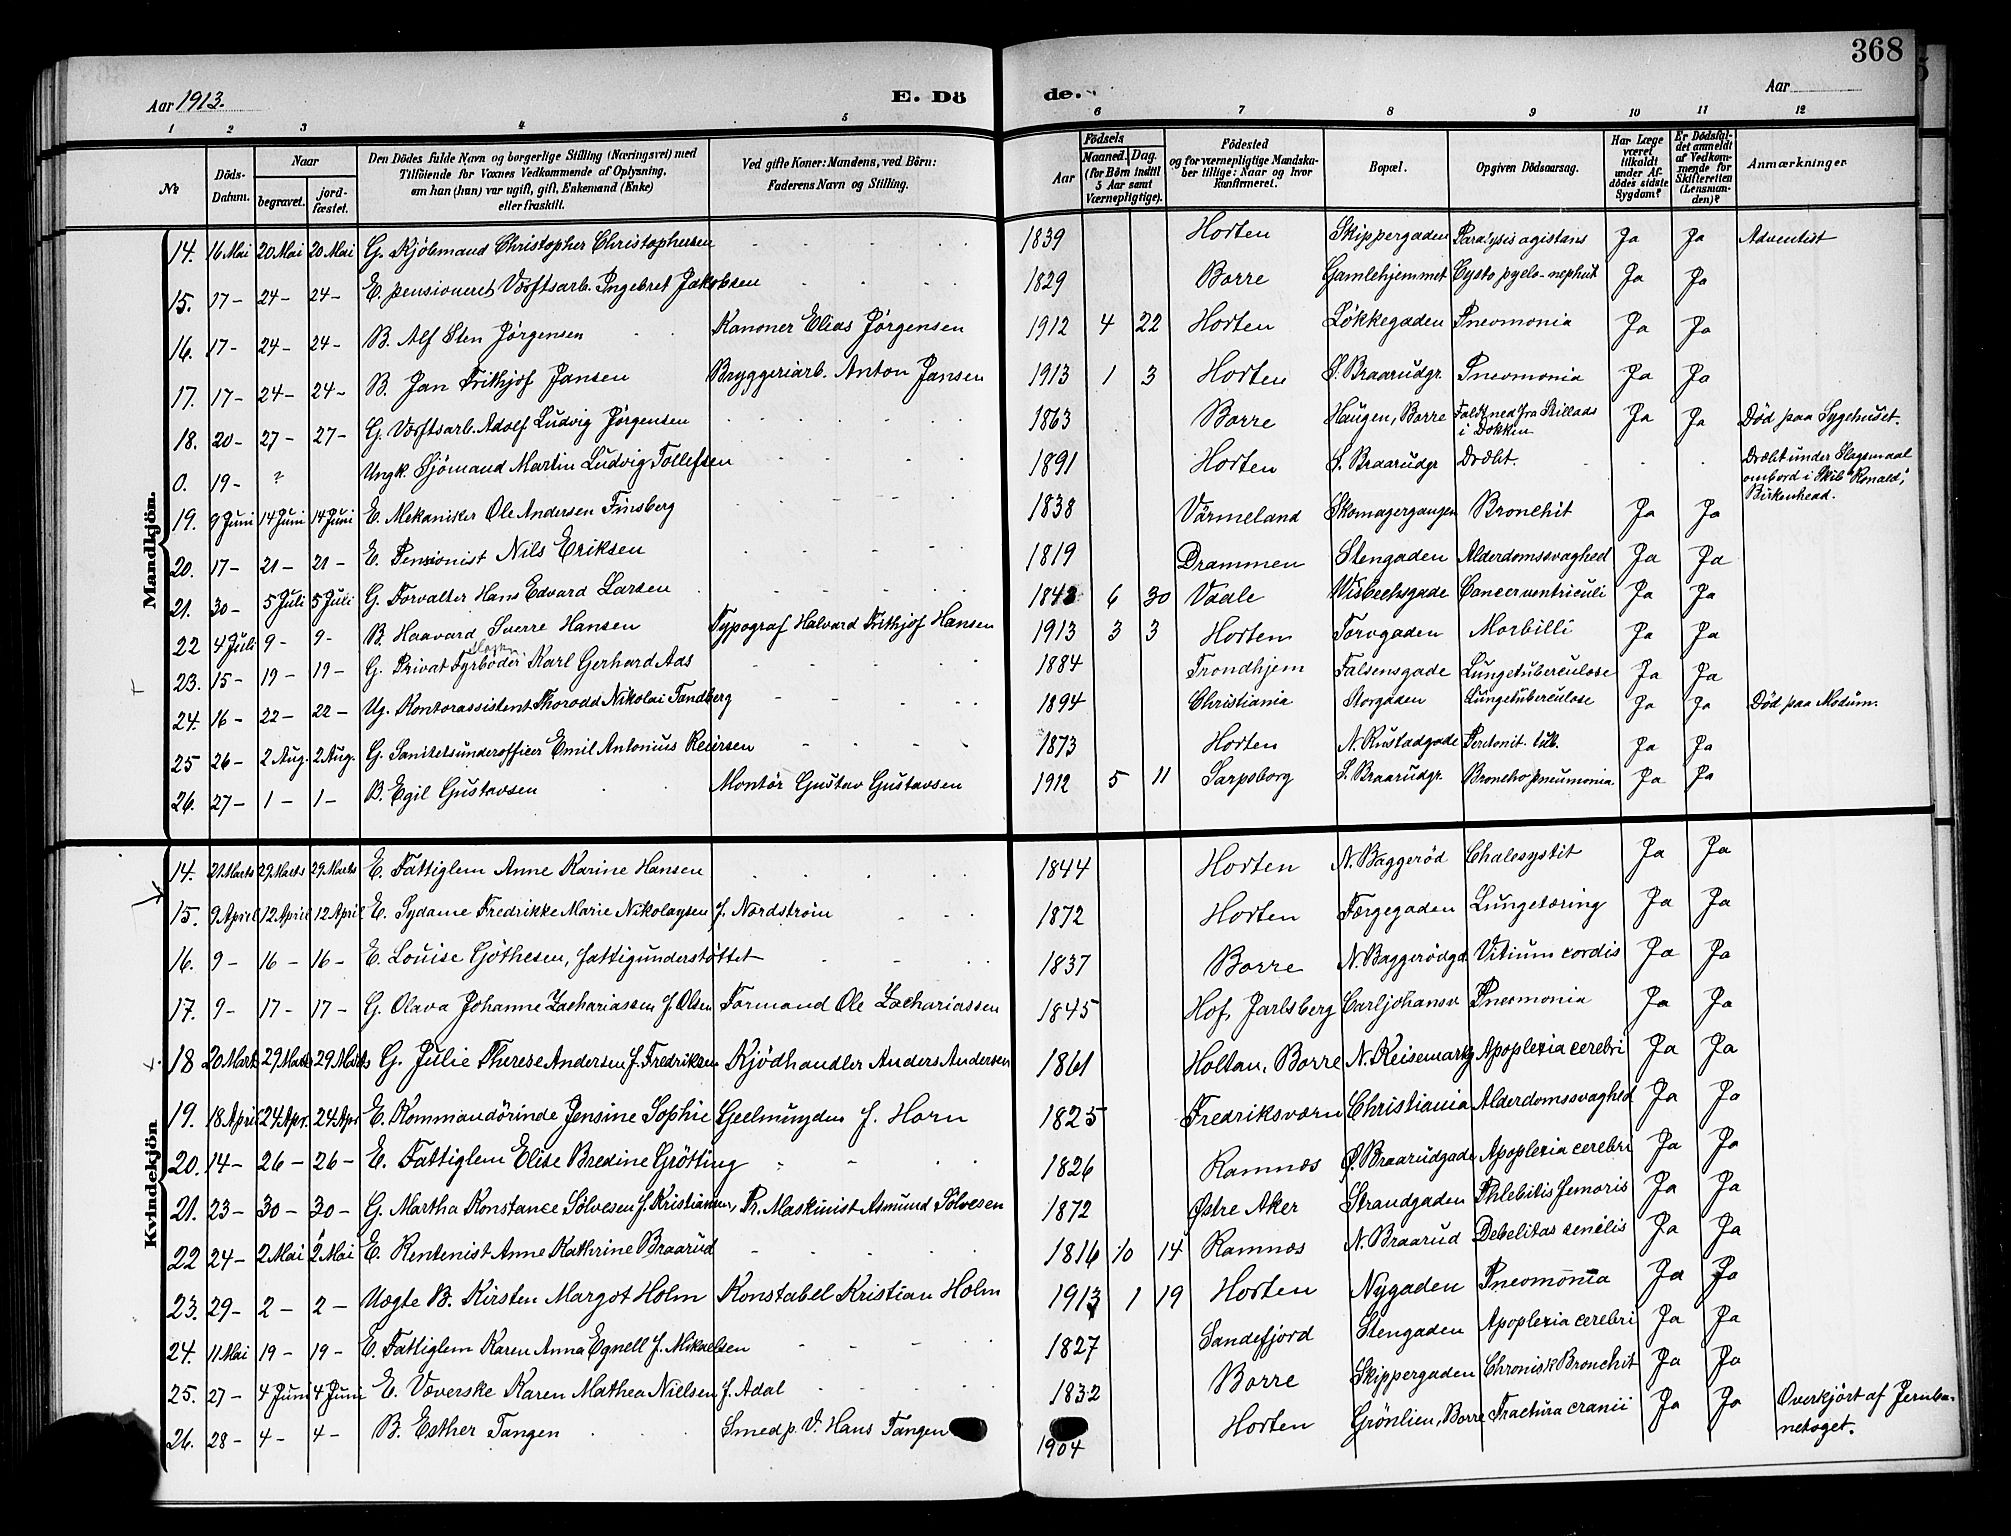 368
Aar 1913. E. Dö de. Aar
1 2 3 4 5 6 7 8 9 10 11 12
№ Döds-Datum. Naar begravet. jord-fæstet. Den Dödes fulde Navn og borgerlige Stilling (Næringsvei) med Tilföiende for Voxnes Vedkommende af Oplysning, om han (hun) var ugift, gift, Enkemand (Enke) eller fraskilt. Ved gifte Koner: Mandens, ved Börn: Faderens Navn og Stilling. Födsels Aar Maaned. Dag. (for Börn indtil 5 Aar samt Værnepligtige). Födested og for værnepligtige Mandskaber tillige: Naar og hvor Konfirmeret. Bopæl. Opgiven Dödsaarsag. Har Læge været tilkaldt under Afdödes sidste Sygdom? Er Dödsfaldet anmeldt af Vedkommende for Skifteretten (Lensmanden)? Anmærkninger
Mandkjön.
14. 16 Mai 20 Mai 20 Mai G. Kjöbmand Christopher Christophersen 1839 Horten Skippergaden Paralysis agistans Ja Ja Adventist
15. 17- 24- 24- E. pensioneret Værftsarb. Ingebret Jakobsen 1829 Borre Gamlehjemmet Cysto pyelo-nephrit Ja Ja
16. 17- 24- 24- B. Alf Sten Jörgensen Kanoner Elias Jörgensen 1912 4 22 Horten Lökkegaden Pneomonia Ja Ja
17. 17- 24- 24- B. Jan Frithjof Jansen Bryggeriarb. Anton Jansen 1913 1 3 Horten S. Braarudgr. Pneomonia Ja Ja
18. 20- 27- 27- G. Værftsarb. Adolf Ludvig Jörgensen 1863 Borre Haugen, Borre Faldt ned fra Stillads i Dokken Ja Ja Död paa Sygehuset.
0. 19- ? Ungk. Sjömand Martin Ludvig Tollefsen 1891 Horten S. Braarudgr Dræbt. Dræbt under Slagsmaal ombord i Skib "Ronald", Birkenhead.
19. 9 Juni 14 Juni 14 Juni E. Mekaniker Ole Andersen Finsberg 1838 Värmeland Skomagergangen Bronchit Ja Ja
20. 17- 21- 21- E. Pensionist Nils Eriksen 1819 Drammen Stengaden Alderdomssvaghed Ja Ja
21. 30- 5 Juli 5 Juli G. Forvalter Hans Edvard Larsen 6 30 Vaale Wisbechsgade Cancer ventriculi Ja Ja
22 4 Juli 9- 9- B. Haavard Sverre Hansen Typograf Halvard Frithjof Hansen 1913 3 3 Horten Torvgaden Morbilli Ja Ja
23. 15- 19- 19- G. Privat Fyrböder Karl Gerhard Aas 1884 Trondhjem Falsensgade Lungetuberculose Ja Ja
24. 16- 22- 22- Ug. Kontorassistent Thorodd Nikolai Tandberg 1894 Christiania Storgaden Lungetuberculose Ja Ja Död paa Modum.
25 26- 2 Aug. 2 Aug. G. Sanitetsunderofficer Emil Antonius Reiersen 1873 Horten N. Rustadgade Peritonit. tub. Ja Ja
26. 27- 1- 1- B. Egil Gustavsen Montör Gustav Gustavsen 1912 5 11 Sarpsborg S. Braarudgr. Broncho pneumonia Ja Ja
Kvindekjön
14. 21 Marts 29 Marts 29 Marts E. Fattiglem Anne Karine Hansen 1844 Horten N. Baggeröd Cholesystit Ja Ja
15. 9 April 12 April 12 April E. Sydame Fredrikke Marie Nikolaysen f. Nordström 1872 Horten Færgegaden Lungetæring Ja Ja
16. 9- 16- 16- E. Louise Göthesen, fattigunderstöttet 1837 Borre N. Baggerödgd Vitium cordis Ja Ja
17. 9- 17- 17- G. Olava Johanne Zachariassen f. Olsen Formand Ole Zachariassen 1845 Hof, Jarlsberg Carljohansv Pneomonia Ja Ja
18 20 Marts 29 Marts 29 Marts G. Julie Therese Andersen f. Fredriksen Kjödhandler Anders Andersen 1861 Holtan, Borre N. Keisemarkg Apoplexia cerebri Ja Ja
19. 18 April 24 Apr. 24 Apr E. Kommandörinde Jensine Sophie Geelmuyden f. Horn 1825 Fredriksværn Christiania Alderdomssvaghed Ja Ja
20. 14- 26- 26- E. Fattiglem Elise Bredine Grötting 1826 Ramnæs Ø. Braarudgade Apoplexia cerebri Ja Ja
21. 23- 30- 30- G. Martha Konstance Sölvesen f. Kristiansen, Pr. Maskinist Asmund Sölvesen 1872 Østre Aker Strandgaden Phlebitis femoris Ja Ja
22 24- 2 Mai 2 Mai E. Rentenist Anne Kathrine Braarud 1816 10 14 Ramnæs N. Braarud Debelitas senilis Ja Ja
23. 29- 2- 2- Uægte B. Kirsten Margot Holm Konstabel Kristian Holm 1913 1 19 Horten Nygaden Pneomonia Ja Ja
24. 11 Mai 19- 19- E. Fattiglem Karen Anna Egnell f. Mikaelsen 1827 Sandefjord Stengaden Apoplexia cerebri Ja Ja
25. 27- 4 Juni 4 Juni E. Væverske Karen Mathea Nielsen f. Adal 1832 Borre Skippergaden Chronisk Bronchit Ja Ja
26. 28- 4- 4- B. Esther Tangen Smed p. V. Hans Tangen 1904 Horten Grönlien, Borre Fractura cranii Ja Ja Overkjört af Jernbanetoget.